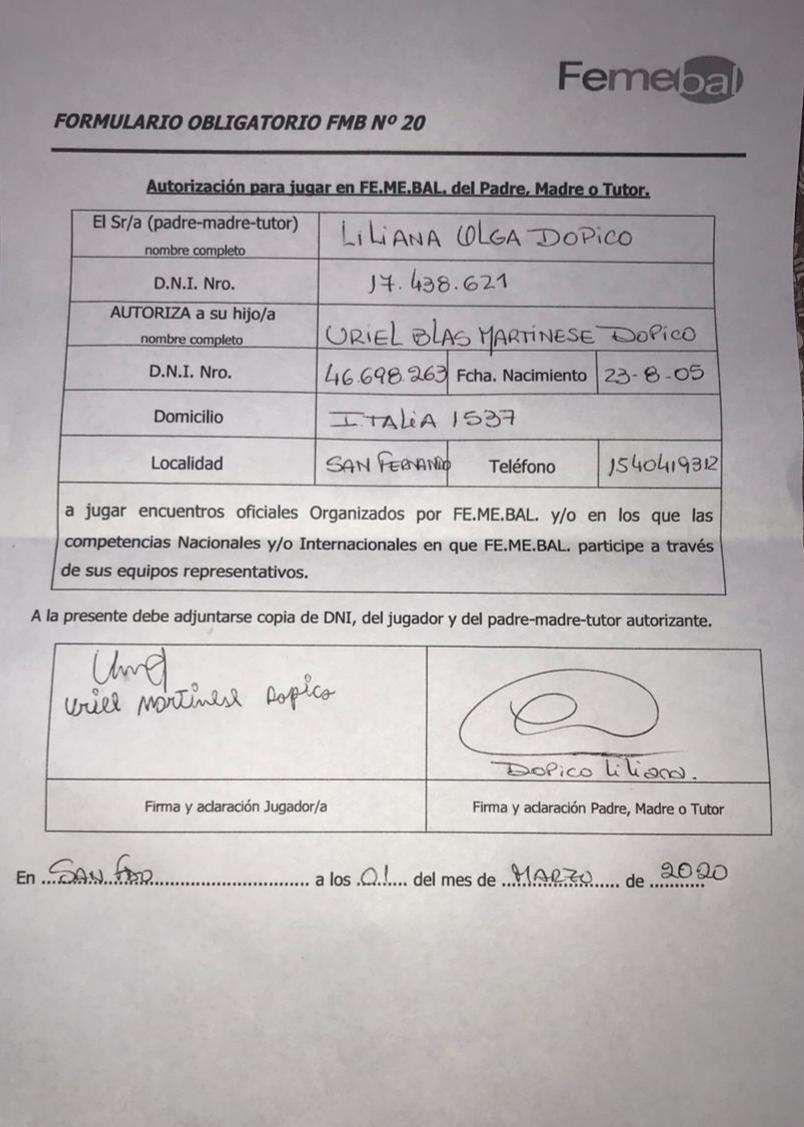 Femebal
FORMULARIO OBLIGATORIO FMB Nº 20
Autorización para jugar en FE.ME.BAL. del Padre, Madre o Tutor.
El Sr/a (padre-madre-tutor)
nombre completo
LILIANA OLGA DOPICO
D.N.I. Nro.
17.438.621
AUTORIZA a su hijo/a
nombre completo
URIEL BLAS MARTINESE DOPICO
D.N.I. Nro.
46.698.263
Fcha. Nacimiento
23-8-05
Domicilio
ITALIA 1537
Localidad
SAN FERNANDO
Teléfono
1540419312
a jugar encuentros oficiales Organizados por FE.ME.BAL. y/o en los que las
competencias Nacionales y/o Internacionales en que FE.ME.BAL. participe a través
de sus equipos representativos.
A la presente debe adjuntarse copia de DNI, del jugador y del padre-madre-tutor autorizante.
Uriel Martinese Dopico
Dopico Liliana.
Firma y aclaración Jugador/a
Firma y aclaración Padre, Madre o Tutor
En ...SAN FDO............................... a los .01.... del mes de ..MARZO..... de 2020